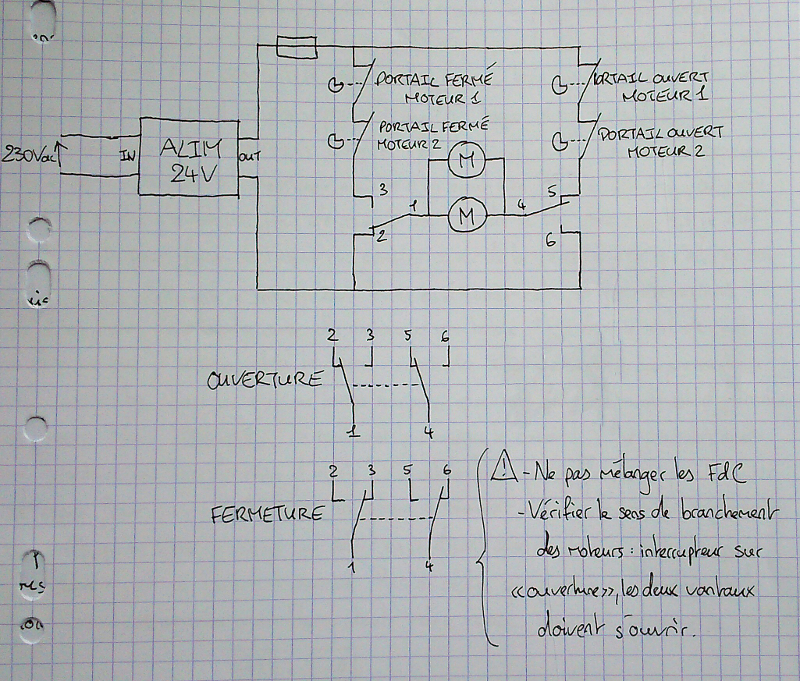 PORTAIL FERMÉ
MOTEUR 1
PORTAIL OUVERT
MOTEUR 1
PORTAIL FERMÉ
MOTEUR 2
PORTAIL OUVERT
MOTEUR 2
230Vac
IN
ALIM
24V
OUT
M
M
3
1
2
4
5
6
2 3 5 6
OUVERTURE
1 4
2 3 5 6
FERMETURE
1 4
⚠ - Ne pas mélanger les FdC
- Vérifier le sens de branchement
des moteurs : interrupteur sur
<<ouverture>>, les deux vantaux
doivent s'ouvrir.